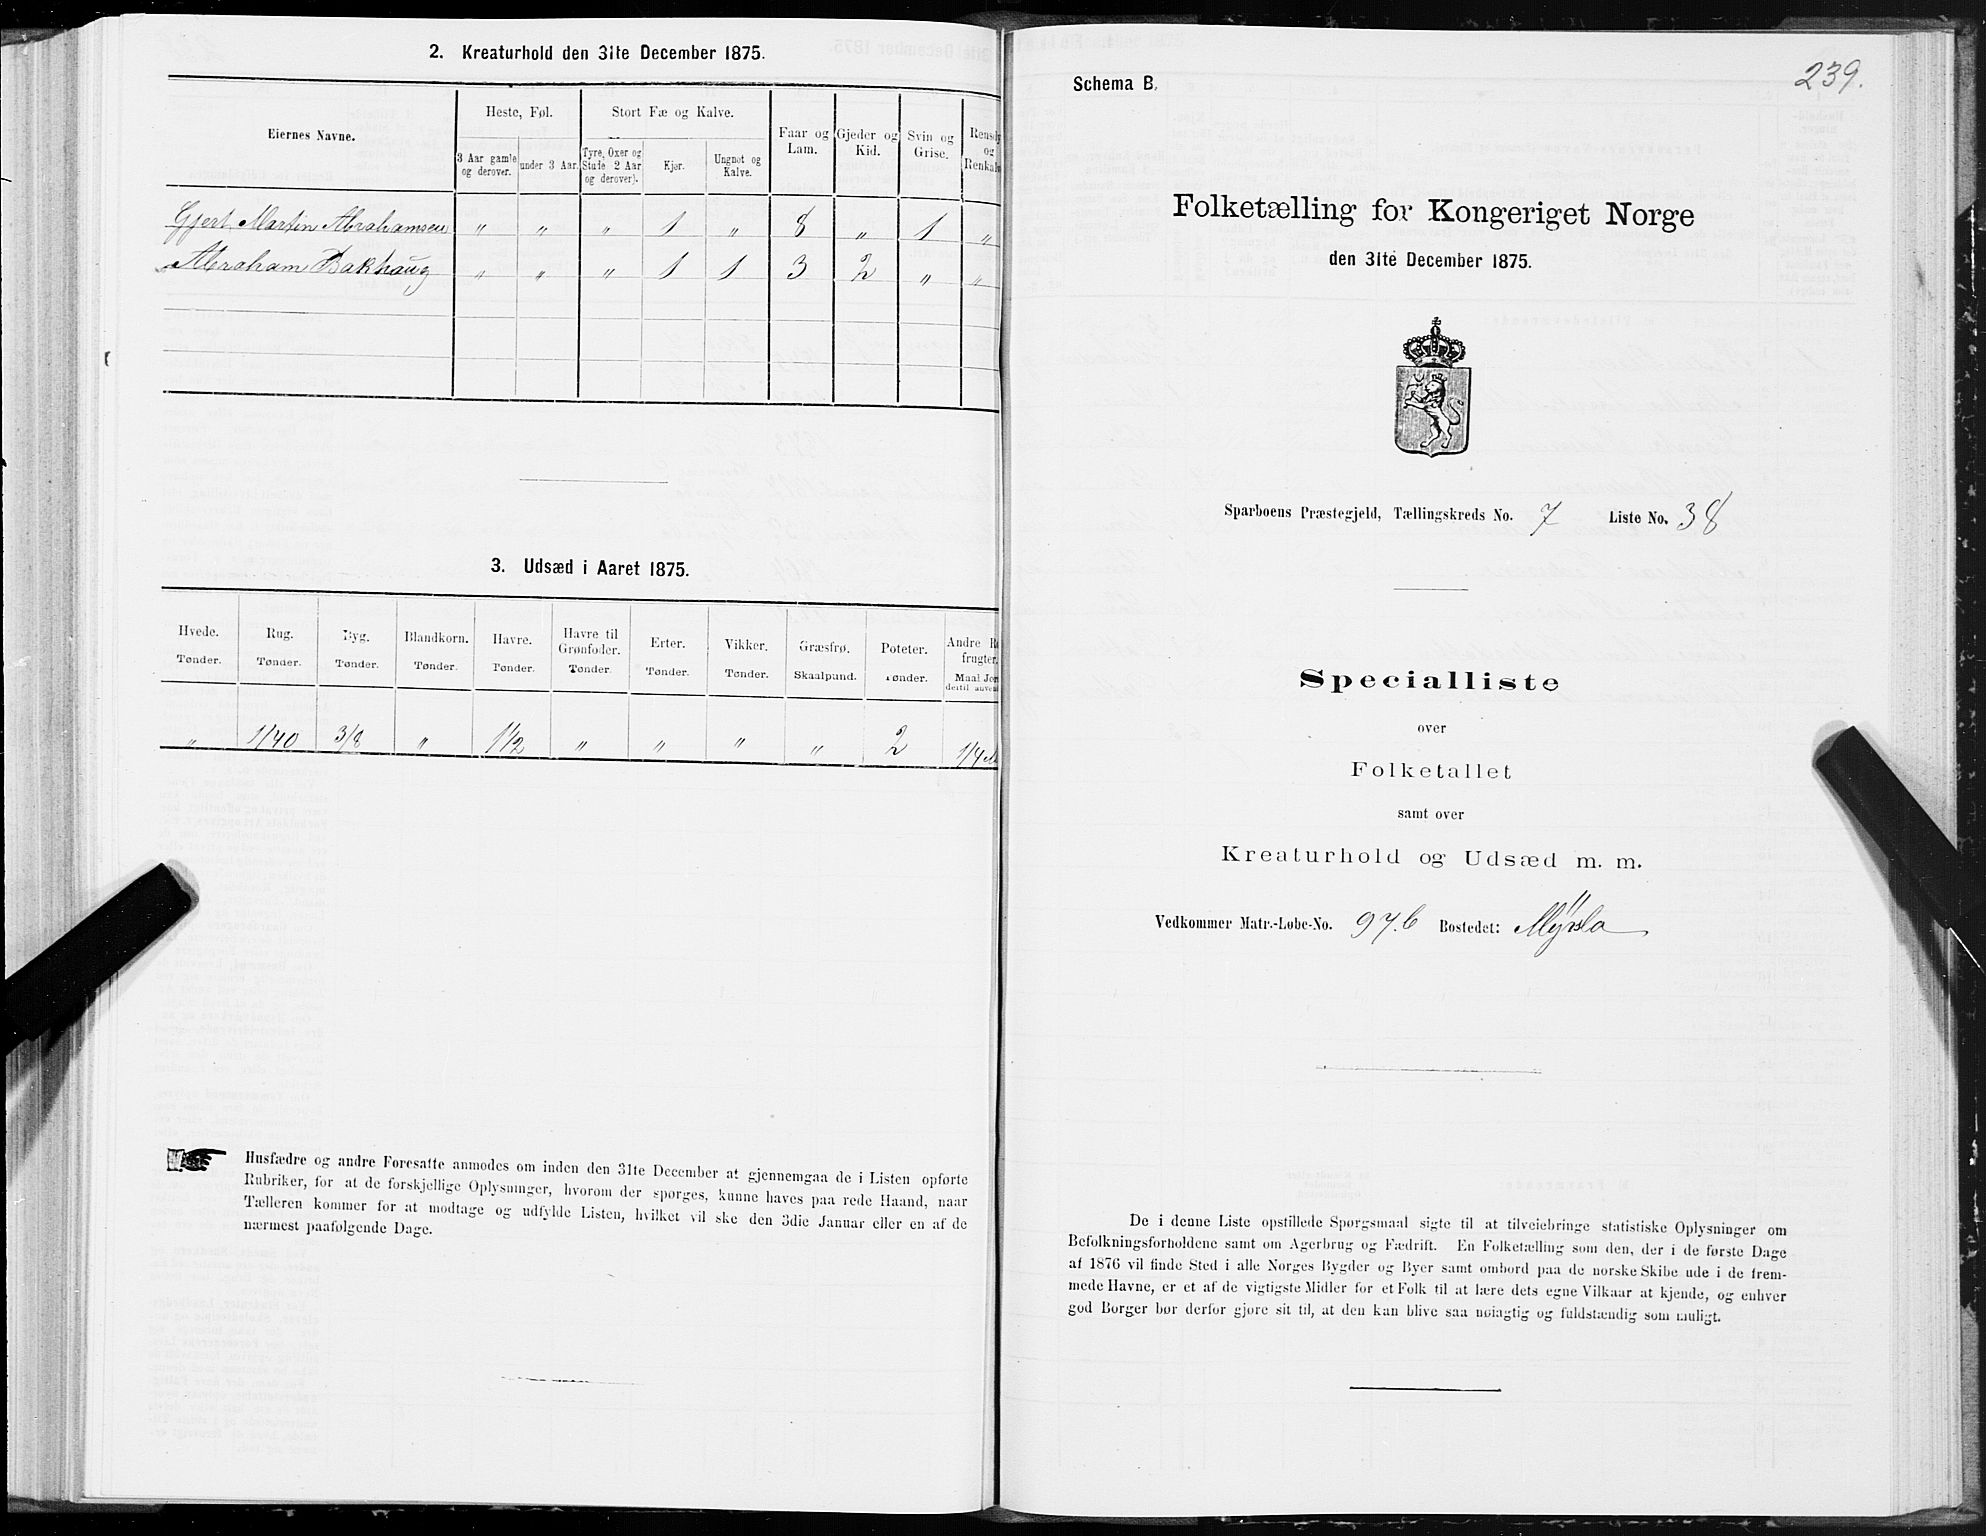 2. Kreaturhold den 31te December 1875.
Eiernes Navne.
Heste, Føl.
Stort Fæ og Kalve.
Faar og Lam.
Gjeder og Kid.
Svin og Grise.
3 Aar gamle og derover.
under 3 Aar.
Tyre, Oxer og Stude 2 Aar og derover).
Kjør.
Ungnøt og Kalve.
Gjert Martin Abrahamsen " " " 1 " 8 " 1 "
Abraham Bakhaug " " " 1 1 3 2 " "
3. Udsæd i Aaret 1875.
Hvede. Rug. Byg. Blandkorn. Havre. Havre til Grønfoder. Erter. Vikker. Græsfrø. Poteter. Andre
Tønder. Tønder. Tønder. Tønder. Tønder. Tønder. Tønder. Tønder. Skaalpund. Tønder. Maal
" 1/40 3/8 " 1 1/2 " " " " 2 1/4
Husfædre og andre Foresatte anmodes om inden den 31te December at gjennemgaa de i Listen opførte
Rubriker, for at de forskjellige Oplysninger, hvorom der spørges, kunne haves paa rede Haand, naar
Tælleren kommer for at modtage og udfylde Listen, hvilket vil ske den 3die Januar eller en af de
nærmest paafølgende Dage.
239.
Schema B.
Folketælling for Kongeriget Norge
den 31te December 1875.
Sparboens Præstegjeld, Tællingskreds No. 7 Liste No. 38
Specialliste
over
Folketallet
samt over
Kreaturhold og Udsæd m. m.
Vedkommer Matr.-Løbe-No. 97.b Bostedet: Myrsla
De i denne Liste opstillede Spørgsmaal sigte til at tilveiebringe statistiske Oplysninger om
Befolkningsforholdene samt om Agerbrug og Fædrift. En Folketælling som den, der i de første Dage
af 1876 vil finde Sted i alle Norges Bygder og Byer samt ombord paa de norske Skibe ude i de frem-
mede Havne, er et af de vigtigste Midler for et Folk til at lære dets egne Vilkaar at kjende, og enhver
god Borger bør derfor gjøre sit til, at den kan blive saa nøiagtig og fuldstændig som muligt.